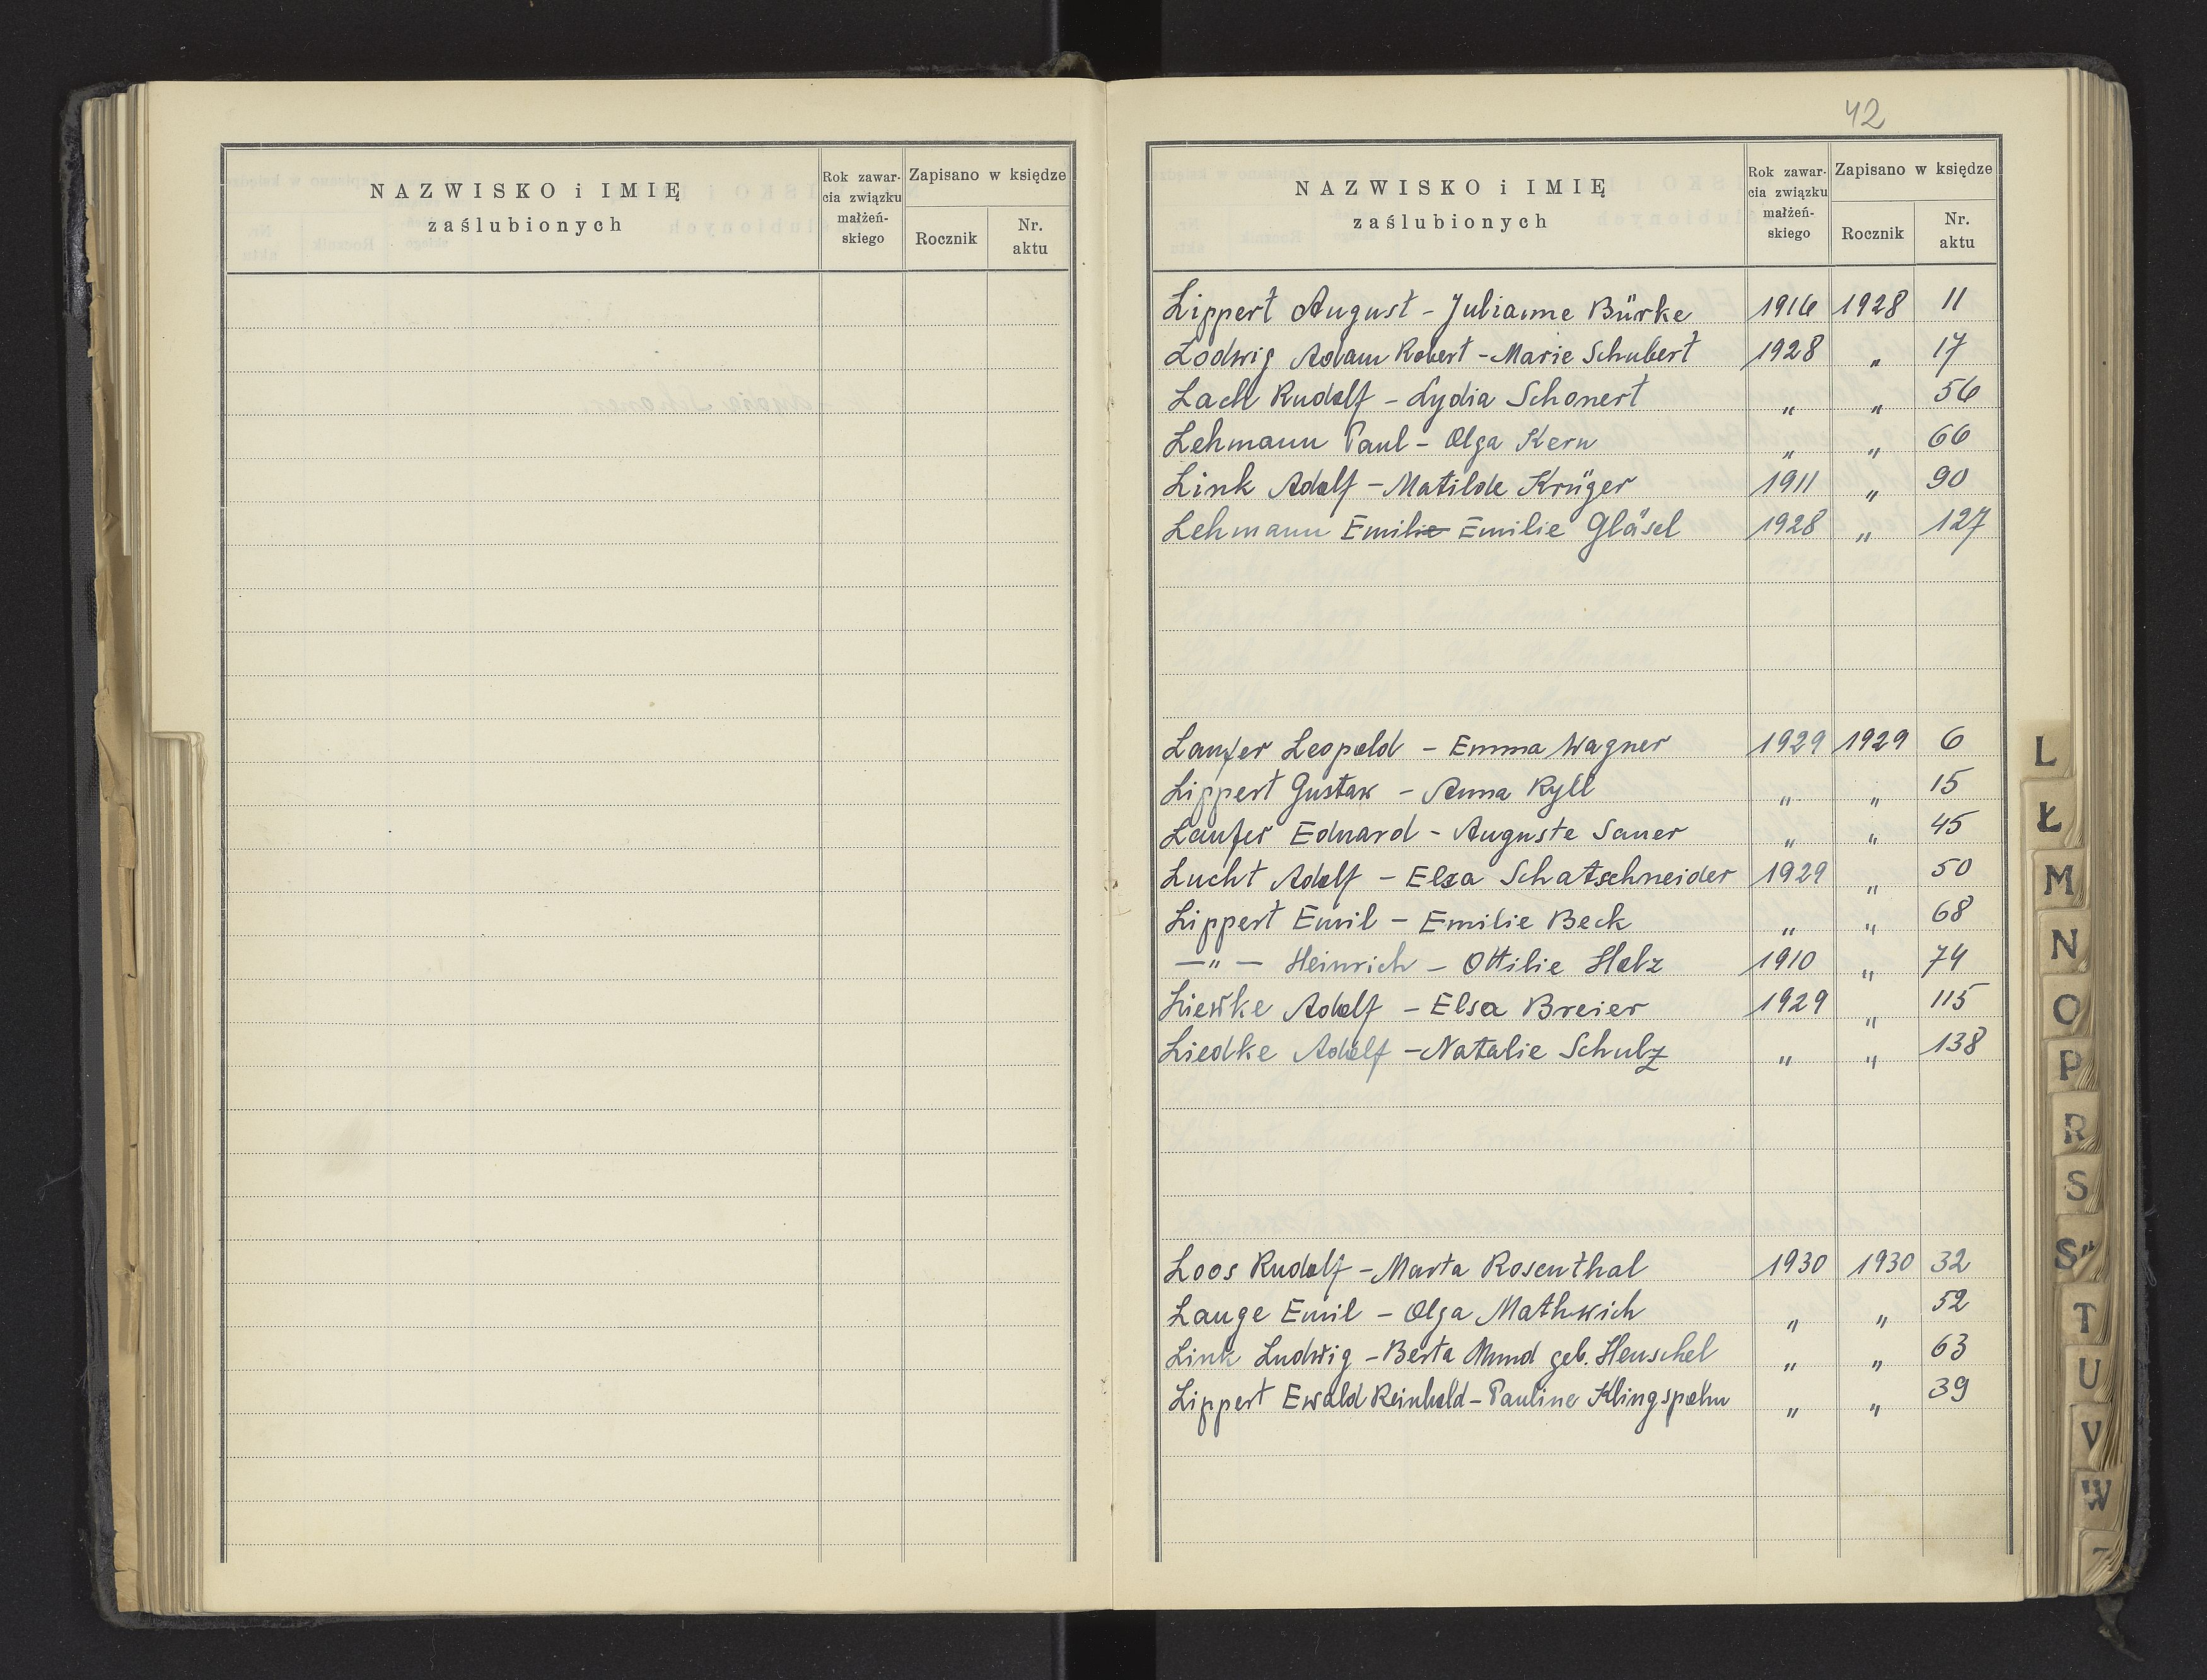 NAZWISKO i IMIĘ
zaślubionych
Rok zawar-
cia związku
małżeń-
skiego
Zapisano w księdze
Rocznik
Nr.
aktu
42
NAZWISKO i IMIĘ
zaślubionych
Rok zawar-
cia związku
małżeń-
skiego
Zapisano w księdze
Rocznik
Nr.
aktu
Lippert August - Julianne Bürke 1916 1928 11
Lodwig Adam Robert - Marie Schubert 1928 " 17
Lach Rudolf - Lydia Schonert " " 56
Lehmann Paul - Olga Kern " " 66
Link Adolf - Matilde Krüger 1911 " 90
Lehmann Emilie Emilie Gläsel 1928 " 127
Laufer Leopold - Emma Wagner 1929 1929 6
Lippert Gustav - Anna Ryll " " 15
Laufer Eduard - Auguste Sauer " " 45
Lucht Adolf - Elsa Schatschneider 1929 " 50
Lippert Emil - Emilie Beck " " 68
—"— Heinrich - Ottilie Holz 1910 " 74
Liewke Adolf - Elsa Breier 1929 " 115
Liedke Adolf - Natalie Schulz " " 138
Loos Rudolf - Marta Rosenthal 1930 1930 32
Lange Emil - Olga " " 52
Link Ludwig - Berta Mund geb. Henschel " " 63
Lippert Ewald Reinhold - Pauline Klingspohn " " 39
L
Ł
M
N
O
P
R
S
Ś
T
U
V
W